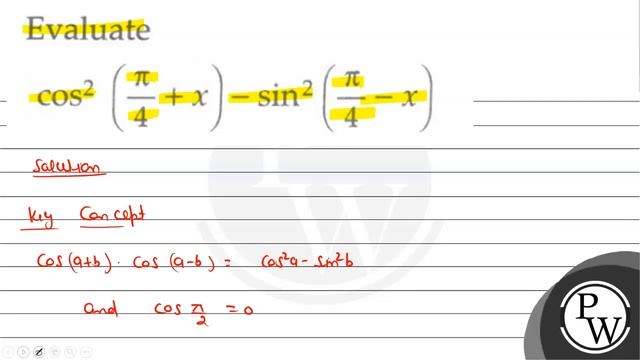 Evaluate
cos² (π/4 + x) − sin² (π/4 − x)
Solution
Key Concept
Cos (a+b) . Cos (a-b) = Cos²a - sin²b
and Cos π/2 = 0
PW
PW